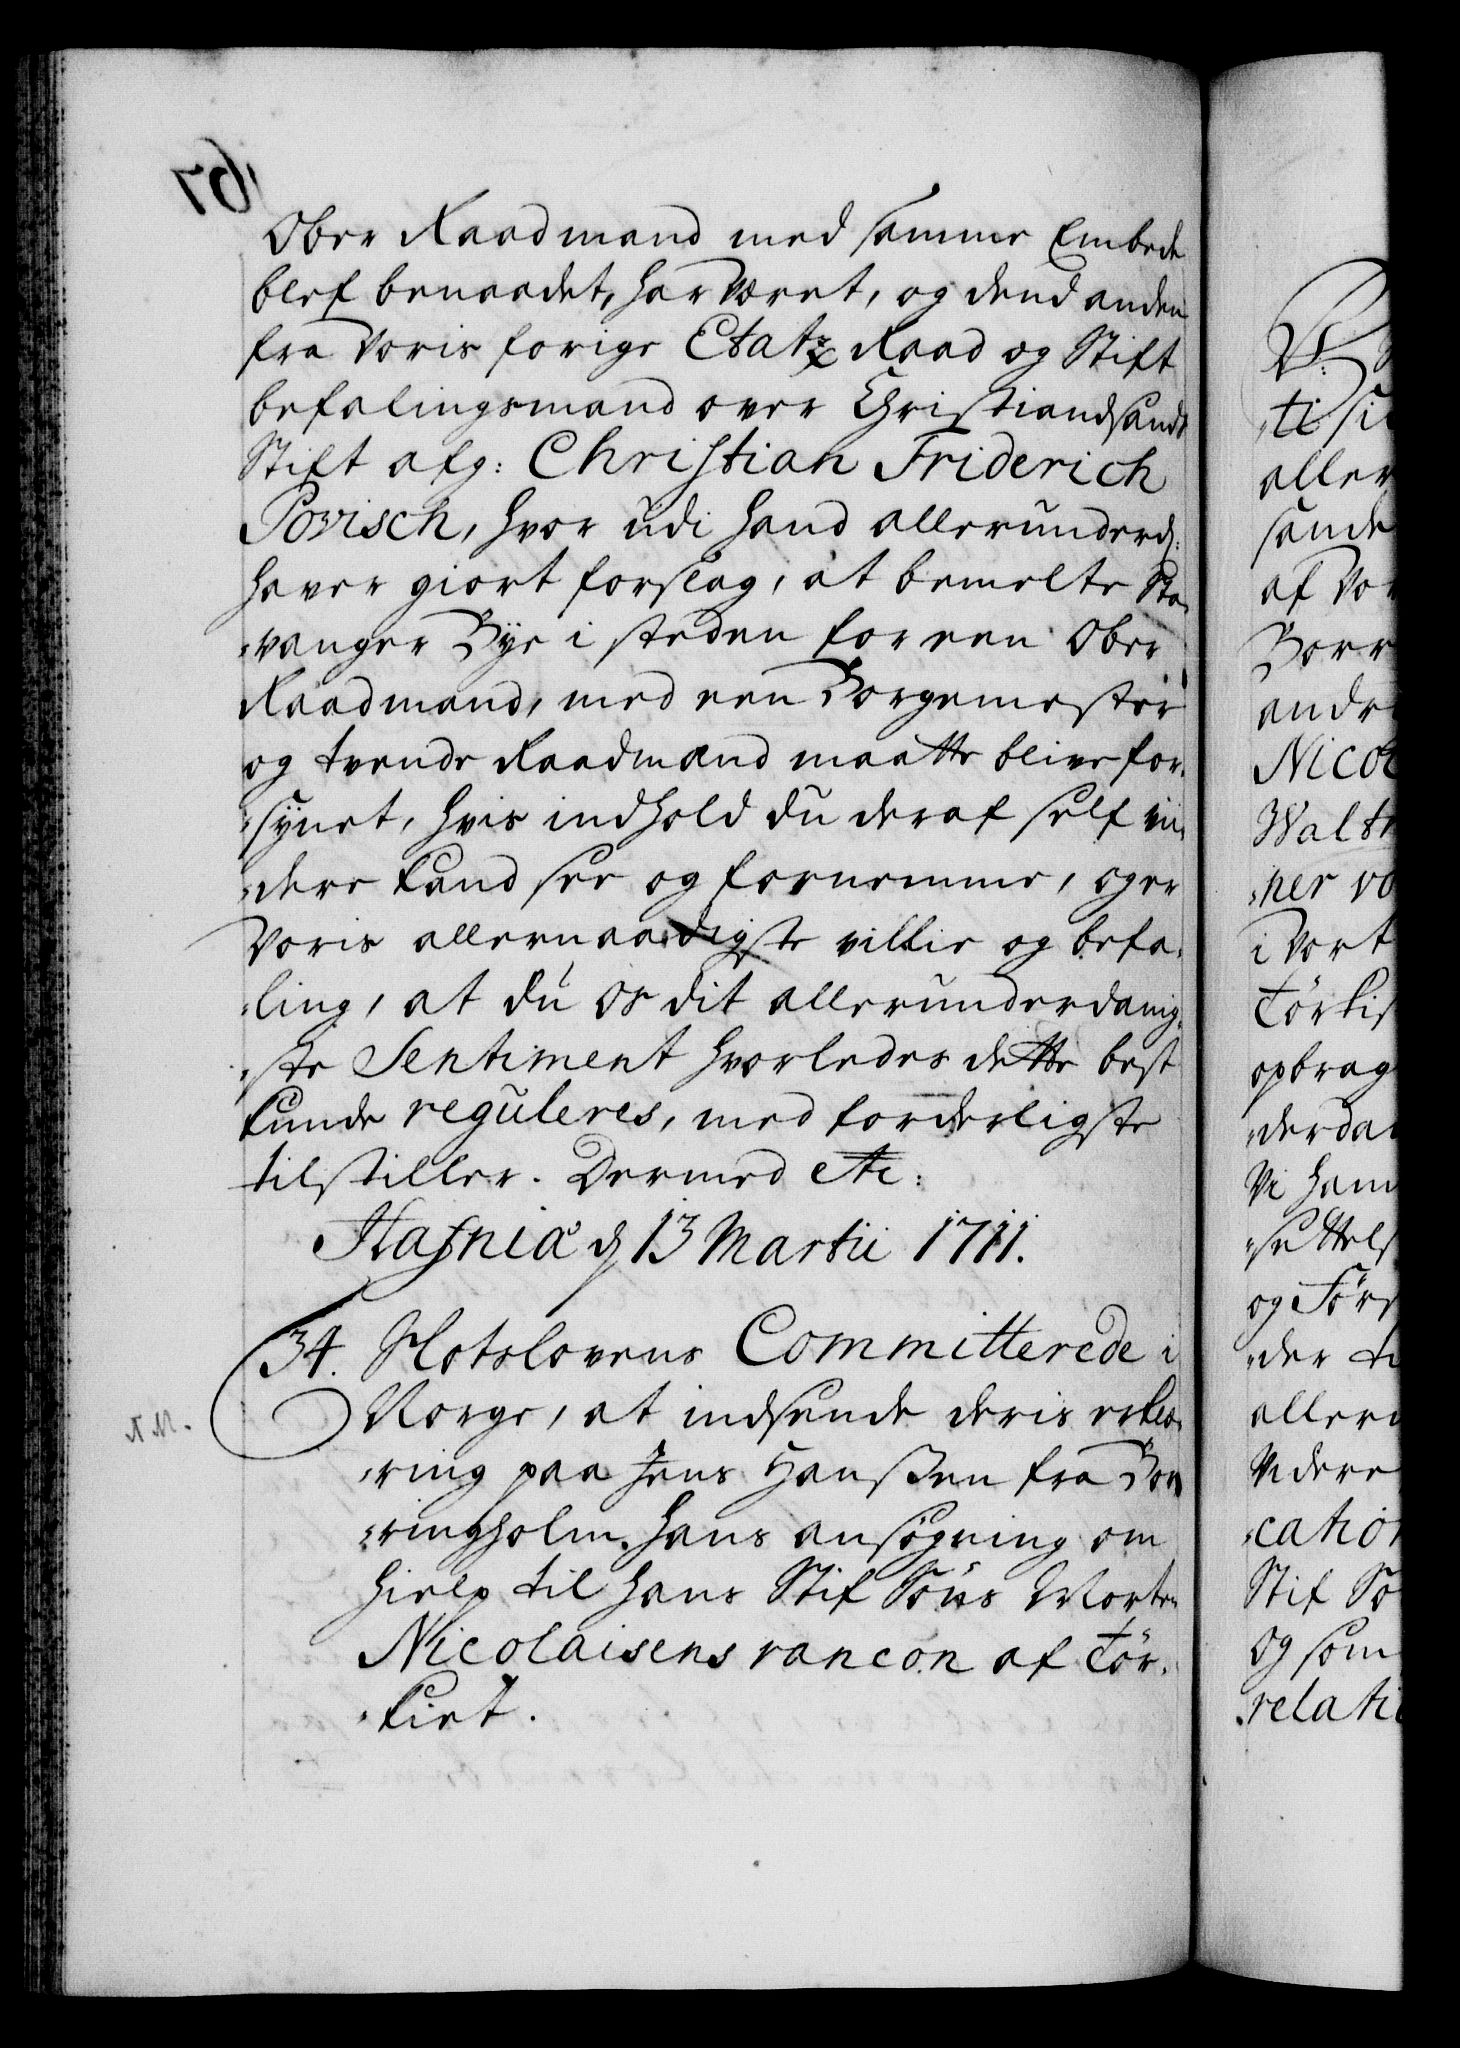 Ober Raadmand med samme Embede
blef benaadet, har været, og dend anden
fra Voris forige Etatz Raad og Stift
befalingsmand over Christiandsands
Stift afg: Christian Friderich
Povisch, hvor udi hand allerunderd:
haver giort forslag, at bemelte Sta-
-vanger Bye i steden for een Ober
Raadmand, med een Borgemester
og tvende Raadmænd maatte blive for-
-synet, hvis indhold du deraf self vii-
-dere kand see og fornemme, og er
Voris allernaadigste villie og befa-
-ling, at du os dit allerunderdanig-
-ste Sentiment hvorledes dette best
kunde reguleres, med forderligste
tilstiller. Dermed etc:
Hafniæ d 13 Martii 1711.
34. Slotslovens Committerede i
Norge, at indsende deris erklæ-
-ring paa Jens Hanssen fra Bor
-ringholm, hans ansøgning om
hielp til hans Stif Søns Morten
Nicolaisens rancon af Tør-
-kiet.
V. 
-ti si
aller
sande
af Vor
Borr
andr
Nicol
Walt
-ner vo
i Vort
Tørkis
opbrag
-derda
Vi ham
-settels
og Førs
-der ti
aller
Videre
-catio
Stif Sø
og som
relati